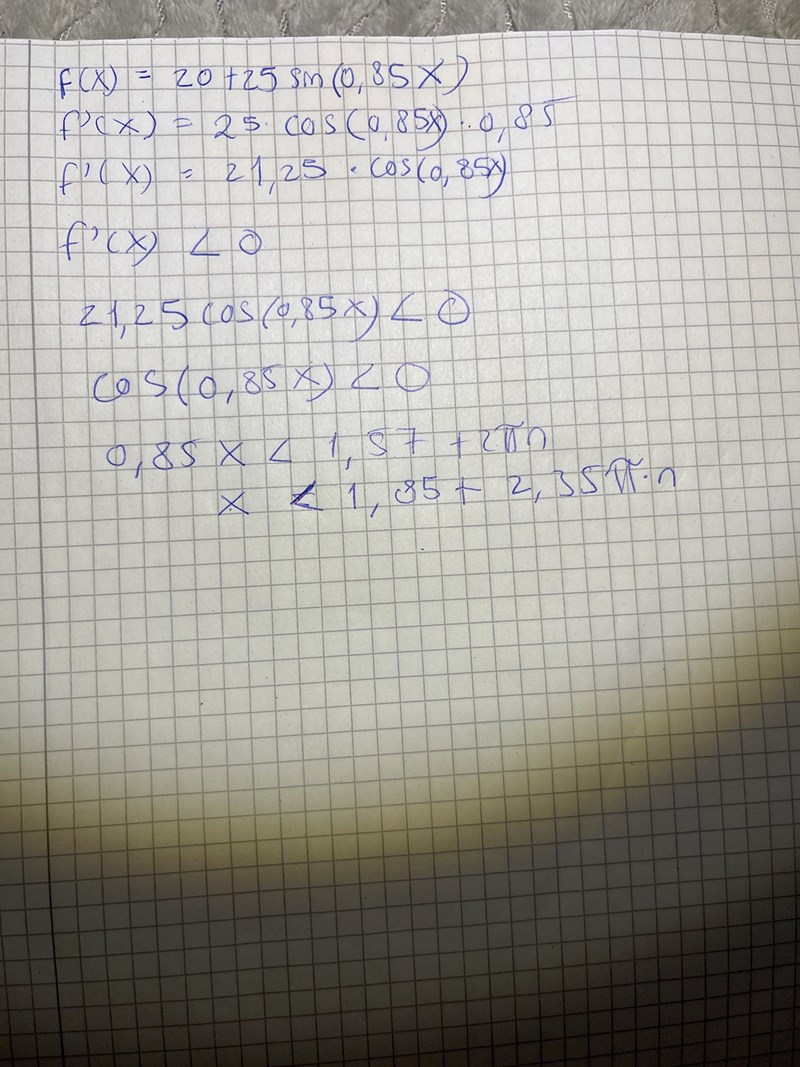 f(x) = 20+25 sin(0,85x)
f'(x) = 25· cos(0,85x)·0,85
f'(x) = 21,25 · cos(0,85x)
f'(x) < 0
21,25 cos(0,85x) < 0
cos(0,85x) < 0
0,85x < 1,57 +2πn
x < 1,85+ 2,35π·n